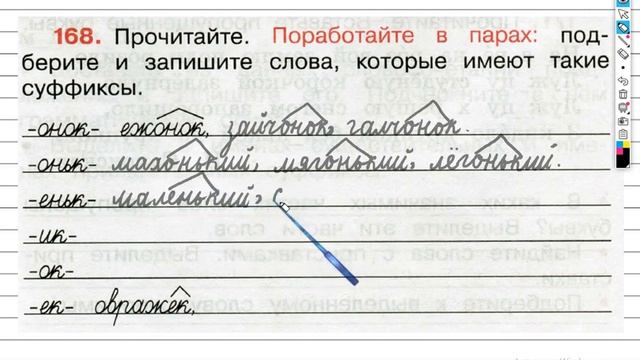 168. Прочитайте. Поработайте в парах: под-
берите и запишите слова, которые имеют такие
суффиксы.
-онок- ежонок, зайчонок, галчонок.
-оньк- махонький, мягонький, легонький.
-еньк- маленький, с
-ик-
-ок-
-ек- овражек,